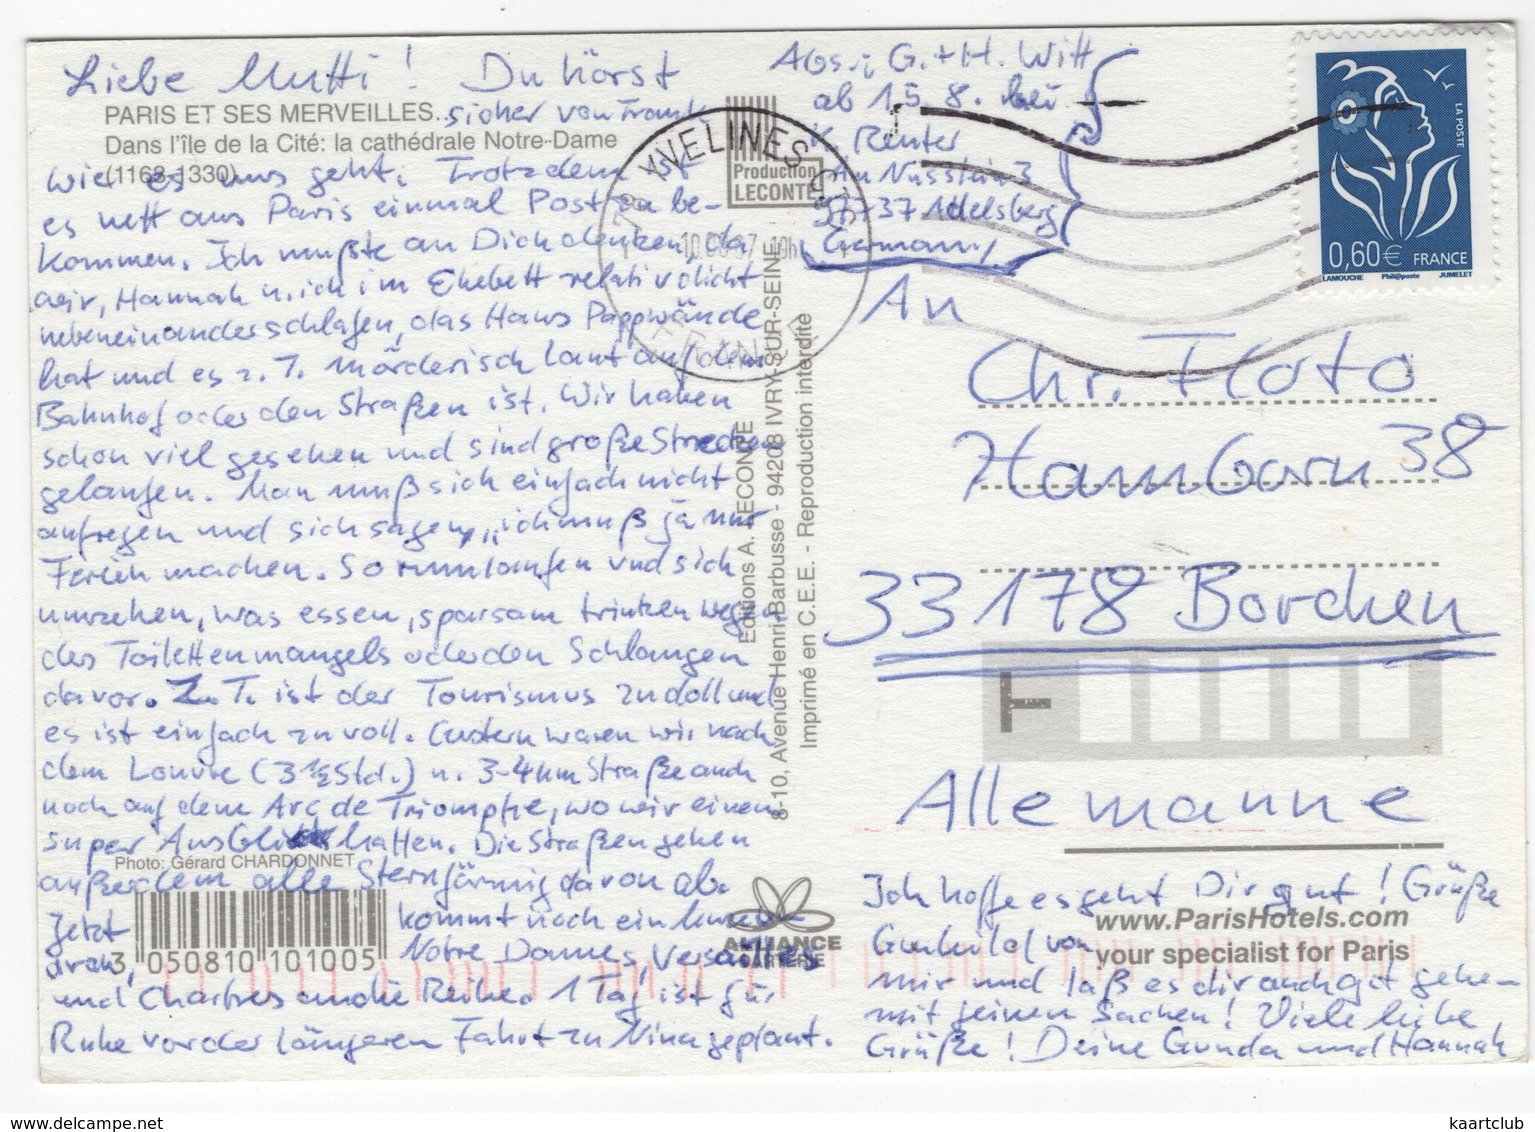 Liebe Mutti! Du hörst
PARIS ET SES MERVEILLES..
sicher von Frank,
Dans l'île de la Cité: la cathédrale Notre-Dame
(1163-1330)
wie es uns geht. Trotzdem ist
es nett aus Paris einmal Post zu be-
kommen. Ich mußte an Dich denken, da
wir, Hannah u. ich im Ehebett relativ dicht
nebeneinander schlafen, das Haus Pappwände
hat und es z. T. mörderisch laut auf dem
Bahnhof oder den Straßen ist. Wir haben
schon viel gesehen und sind große Strecken
gelaufen. Man muß sich einfach nicht
aufregen und sich sagen, „ich muß ja nur
Ferien machen. So rumlaufen und sich
umsehen, was essen, sparsam trinken wegen
des Toilettenmangels oder den Schlangen
davor. Z. T. ist der Tourismus zu doll und
es ist einfach zu voll. Gestern waren wir nach
dem Louvre (3 ½ Std.) u. 3-4 km Straße auch
noch auf dem Arc de Triomphe, wo wir einen
super Ausblick hatten. Die Straßen gehen
Photo: Gérard CHARDONNET
außerdem alle Sternförmig davon ab.
Jetzt kommt noch ein
dran, Notre Dames, Versailles
3 050810 101005
und Chartres an die Reihe. 1 Tag ist für
Ruhe vor der längeren Fahrt zu Nina geplant.
Production
LECONTE
YVELINES CTC
FRANCE
Editions A. LECONTE
8-10, Avenue Henri-Barbusse - 94208 IVRY-SUR-SEINE
Imprimé en C.E.E. - Reproduction interdite
ALLIANCE
CARTERIE
Abs.: G. + H. Witt
ab 15. 8. bei
Renter
Am Nüsslein 3
Adelsberg
Germany
LA POSTE
0,60€ FRANCE
LAMOUCHE Phil@poste JUMELET
An
Chr. Floto
Hamborn 38
33178 Borchen
T
Allemanne
Ich hoffe es geht Dir gut! Grüße
www.ParisHotels.com
Gunhild von
your specialist for Paris
mir und laß es dir auch gut gehen
mit seinen Sachen! Viele liebe
Grüße! Deine Gunda und Hannah
kaartclub